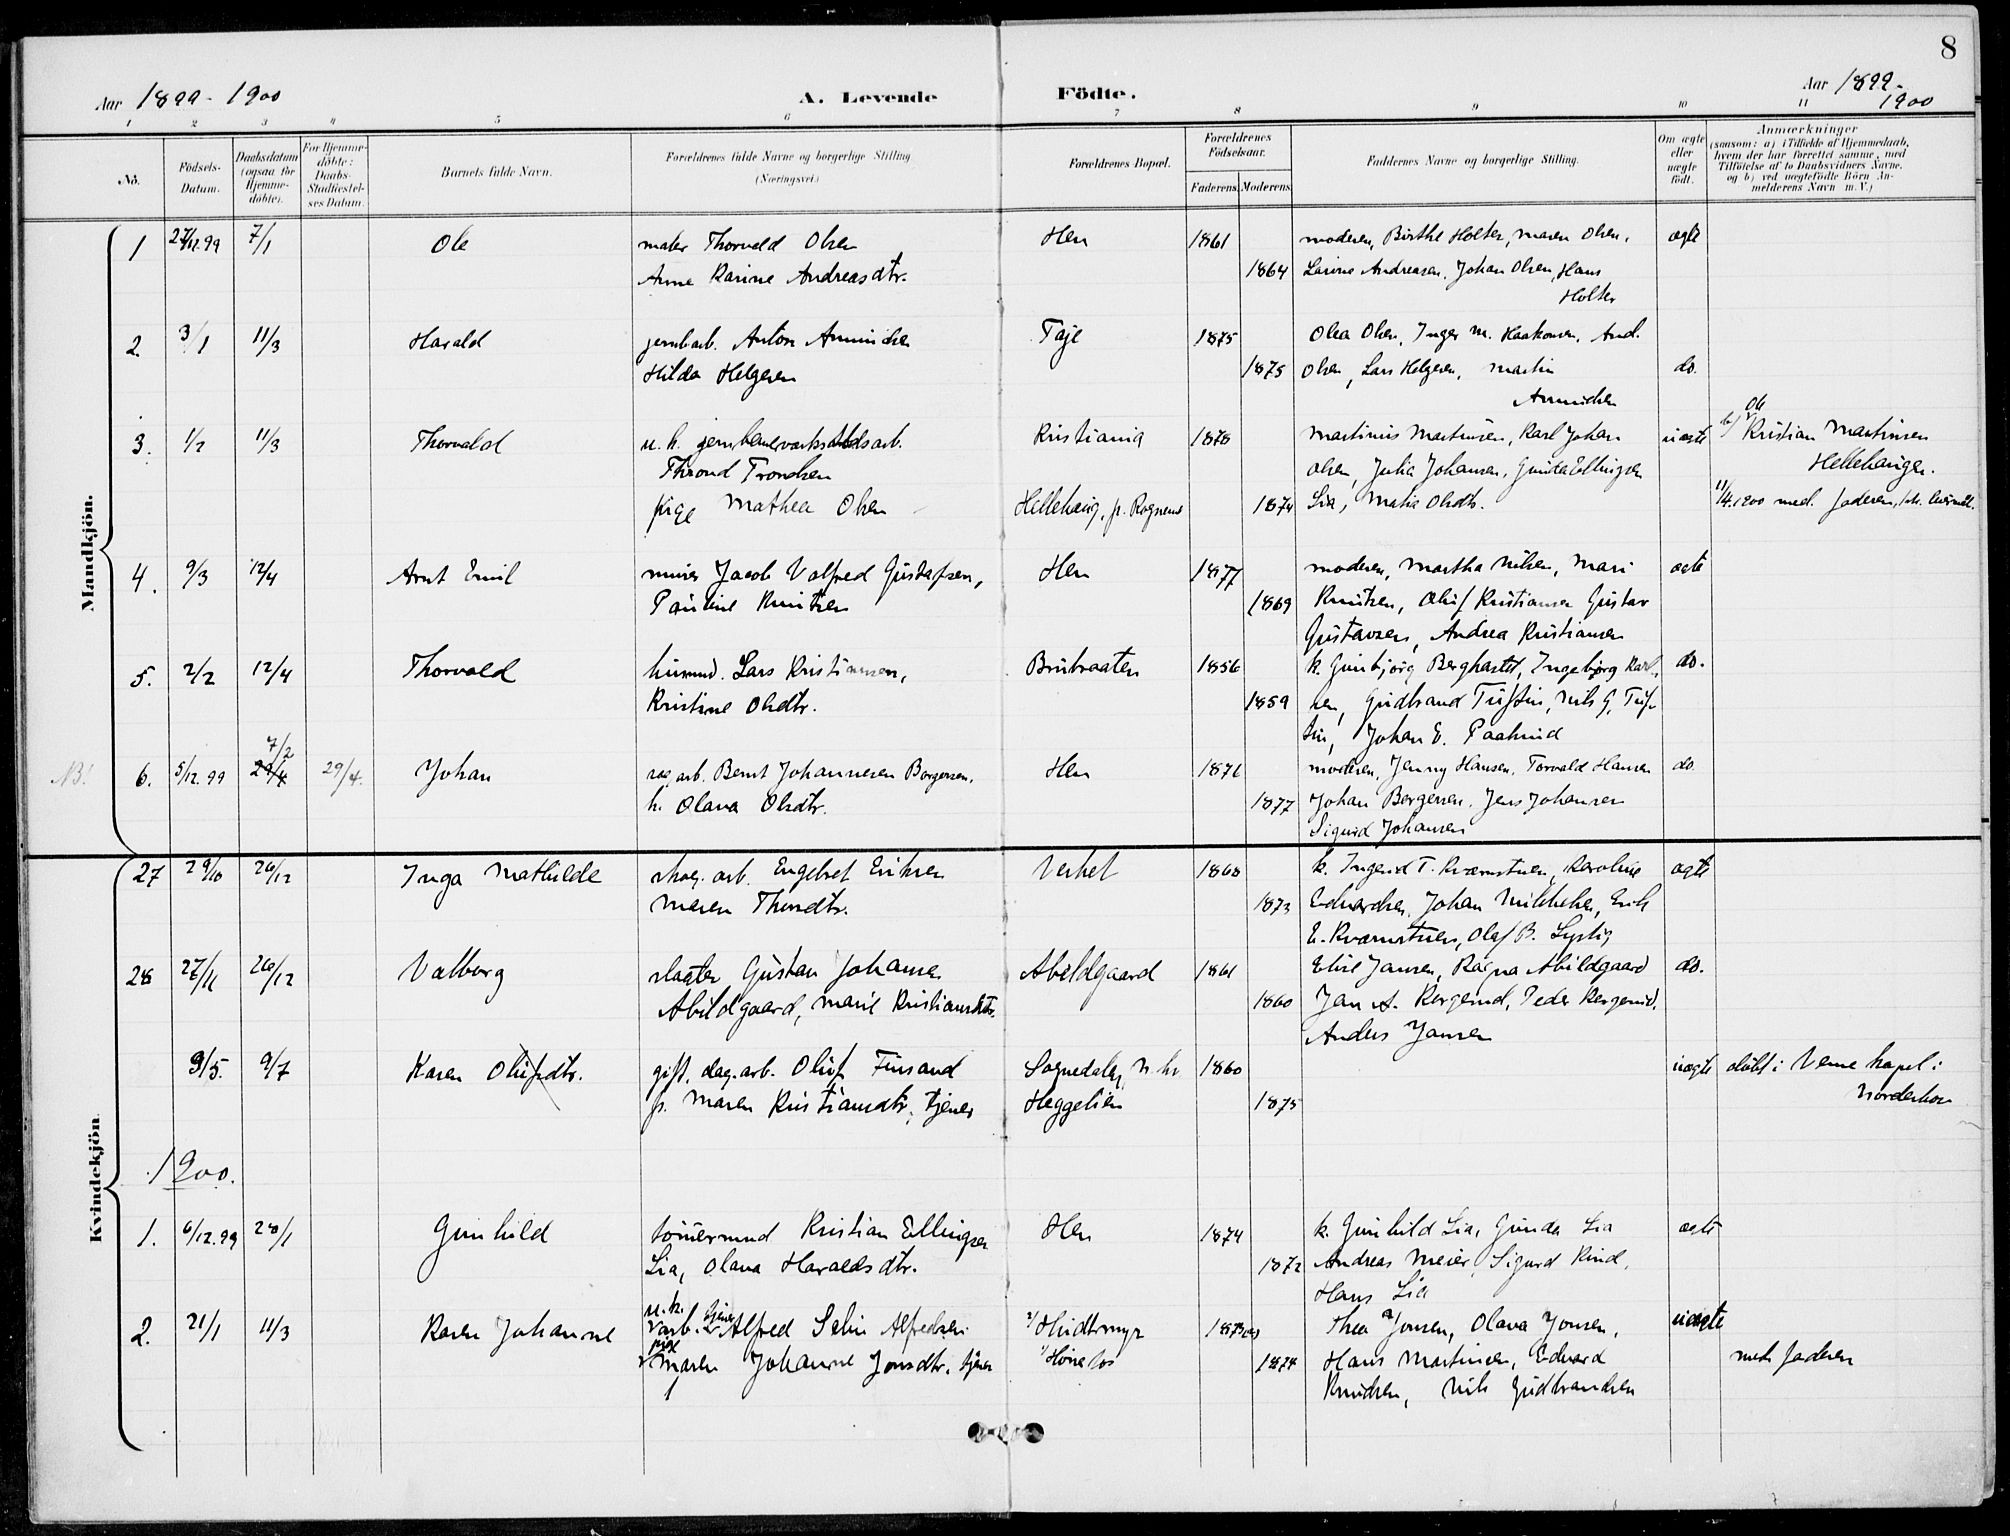 8
Aar 1899-1900
A. Levende Födte.
Aar 1899-1900
1 2 3 4 5 6 7 8 9 10 11
No.
Födsels-Datum.
Daabsdatum (ogsaa for Hjemme-döbte).
For Hjemme-döbte: Daabs-Stadfæstel-ses Datum.
Barnets fulde Navn.
Forældrenes fulde Navne og borgerlige Stilling (Næringsvei.)
Forældrenes Bopæl.
Forældrenes Födselsaar.
Faderens. Moderens.
Faddernes Navne og borgerlige Stilling.
Om ægte eller uægte födt.
Anmærkninger
(saasom: a) i Tilfælde af Hjemmedaab,
hvem der har forrettet samme, med
Tilföielse af to Daabsvidners Navne,
og b) ved uægtefödte Börn An-
melderens Navn m. V.)
Mandkjön.
1 27/12.99 7/1 Ole maler Thorvald Olsen Hen 1861 moderen, Birthe Holter, Maren Olsen, ægte
Anne Karine Andreasdtr. 1864 Larine Andreasen, Johan Olsen, Hans
Holter
2. 3/1 11/3 Harald jernbarb. Anton Amundsen 1875 Olea Olsen, Inger M. Haakonsen, And.
Hilda Helgesen 1875 Olsen, Lars Helgesen, Martin do.
Amundsen
3. 1/2 11/3 Thorvald u. k. jernbaneverkstedsarb. Kristiania 1878 Martinius Martinsen, Karl Johan uægte b) Ole Kristian Martinsen
Thrond Trondsen Olsen, Julia Johansen, Gunda Ellingsen Hellehaugen.
pige Mathea Olsen Hellehaug, p. Ragnerud 1874 Lia, Matia Olsdtr. 11/4.1900 med. faderen,
4. 9/3 12/4 Arnt Emil murer Jacob Valfred Gustafsen, Hen 1877 moderen, Martha Nilsen, Mari ægte
Pauline Knutsen 1869 Knutsen, Oluf Kristiansen Gustav
Gustavsen, Andrea Kristiansen
5. 2/2 12/4 Thorvald husmd. Lars Kristiansen, Brubraaten 1856 k. Gunbjörg Berghastel, Ingebjørg Karl- do.
Kristine Olsdtr. 1859 sen, Gudbrand Tuftin, Nils G. Tuf-
tin, Johan E. Paalsrud
NB! 6. 5/12.99 7/2 29/4 29/4. Johan sagarb. Bernt Johannesen Borgersen, Hen 1871 moderen, Jenny Hansen, Torvald Hansen do.
h. Olava Olsdtr. 1877 Johan Borgersen, Jens Johansen
Sigurd Johansen
Kvindekjön
27 29/10 26/12 Inga Mathilde skog. arb. Engebret Eriksen Verket 1868 k. Ingerid T. Kværnstuen, Karoline ægte
Maren Thordtr. 1873 Edvardsen, Johan Mikkelsen, Erik
E. Kværnstuen, Olaf B. Lystig
28 27/11 26/12 Valborg slagter Gustav Johansen Abildgaard 1861 Elise Jansen, Ragna Abildgaard do.
Abildgaard, Marie Kristiansdtr. 1860 Jan A. Bergerud, Peder Bergerud,
Anders Jansen
9/5. 9/7 Karen Olufsdtr. gift. dag.arb. Oluf Finsand Sognedalen, 1860 uægte döbt i Veme kapel i
p. Maren Kristiansdtr. tjener Heggelien 1875 Norderhov
1900.
1. 6/12.99 28/1 Gunhild tömermd Kristian Ellingsen Hen 1874 k. Gunhild Lia, Gunda Lia ægte
Lia, Olava Haraldsdtr. 1872 Andreas Meier, Sigurd Rud,
Hans Lia
2. 21/1 11/3 Karen Johanne u. k. arb. tjener Alfred Selin Alfredsen 2/ Hudtmyr 1875 Thea Jonsen, Olava Jonsen, uægte
pige Maren Johanne Jonsdtr. tjener 1/ Hönefos 1874 Hans Martinsen, Edvard med. faderen
Knudsen, Nils Gudbrandsen